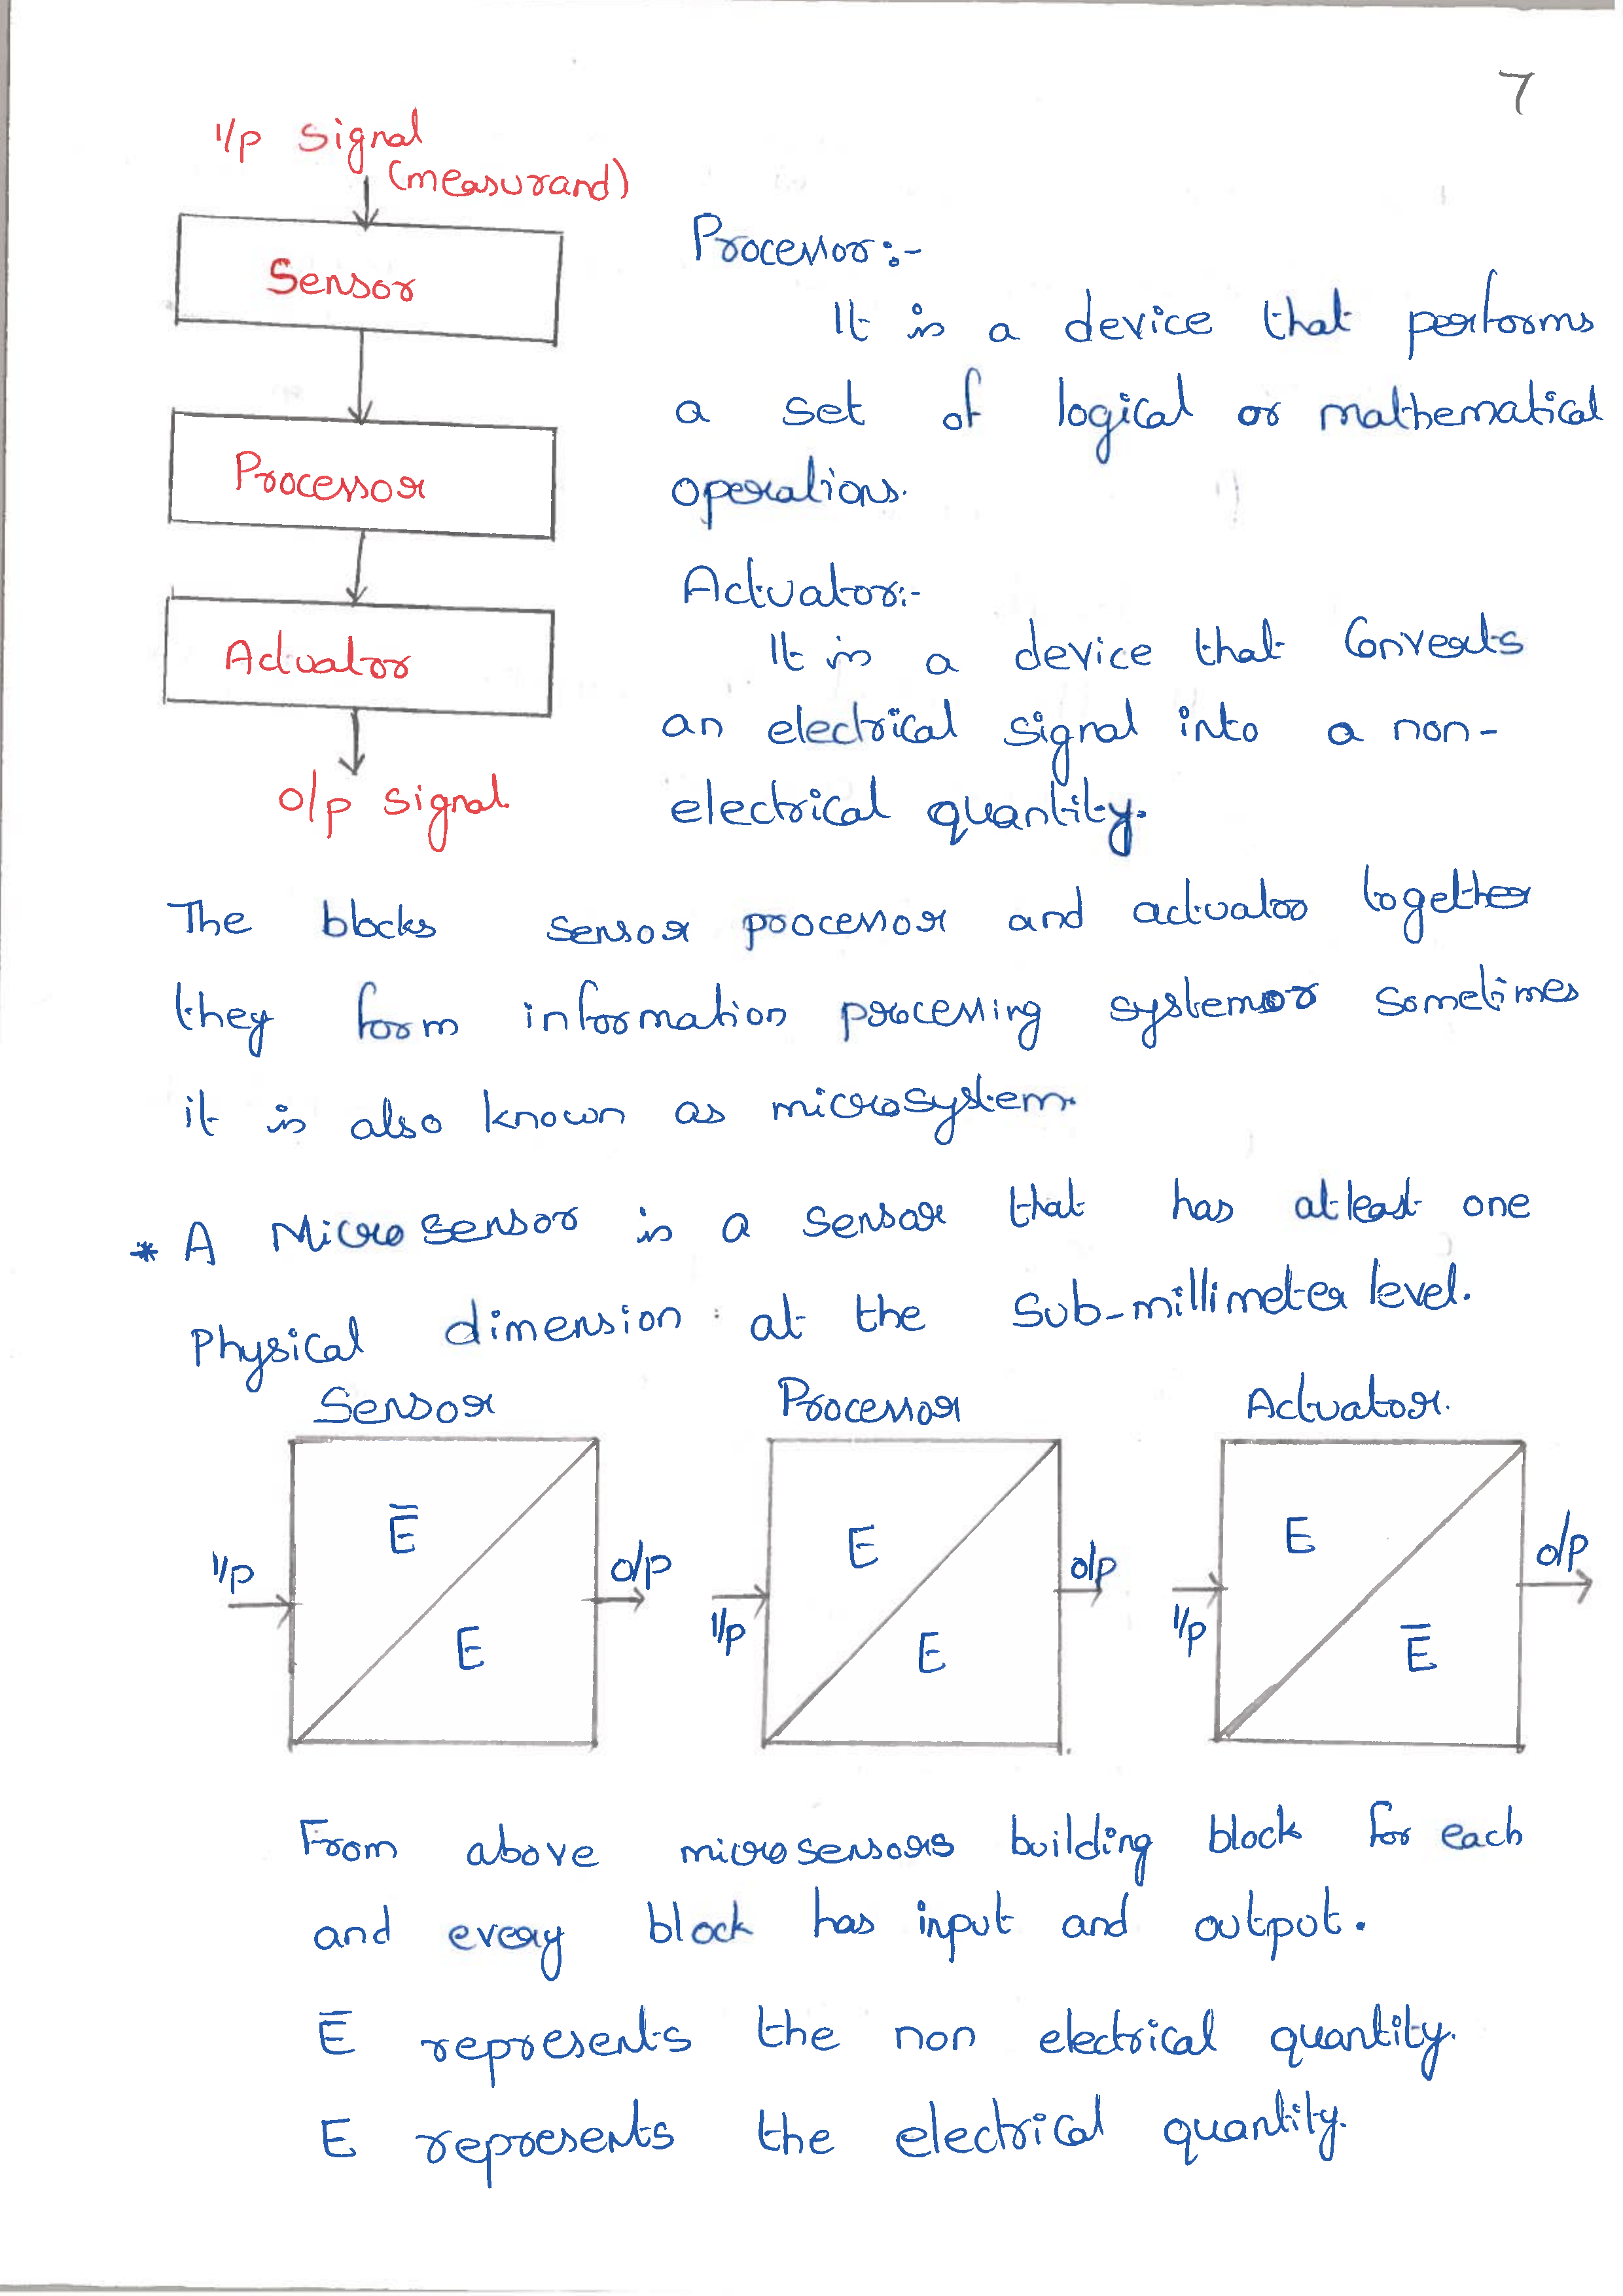 7
I/p signal
(measurand)
Sensor
Processor
Actuator
o/p signal.
Processor:-
It is a device that performs
a set of logical or mathematical
operations.
Actuator:-
It is a device that Converts
an electrical signal into a non-
electrical quantity.
The blocks sensor processor and actuator together
they form information processing system or sometimes
it is also known as microsystem.
* A Micro sensor is a sensor that has atleast one
Physical dimension at the Sub-millimeter level.
Sensor Processor Actuator.
Ē E E
I/p o/p I/p o/p I/p o/p
E E Ē
From above microsensors building block for each
and every block has input and output.
Ē represents the non electrical quantity.
E represents the electrical quantity.